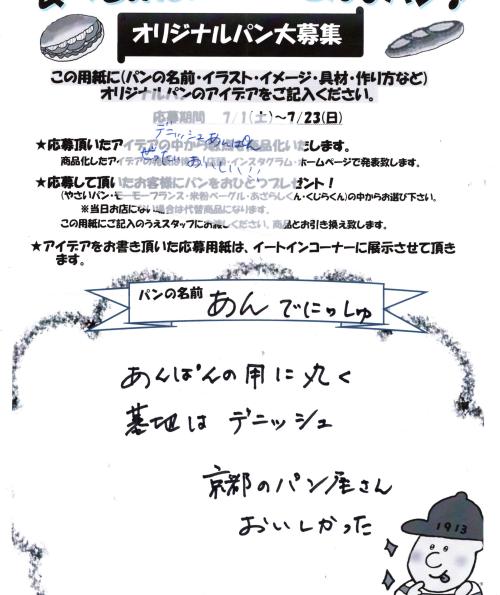 オリジナルパン大募集
この用紙に(パンの名前・イラスト・イメージ・具材・作り方など)
オリジナルパンのアイデアをご記入ください。
応募期間 7/1(土)~7/23(日)
デニッシュあんぱん
ぜったいおいしい!!
★応募頂いたアイデアの中から
商品化いたします。
商品化したアイデアは
・インスタグラム・ホームページで発表致します。
★応募して頂いたお客様にパンをおひとつプレゼント!
(やさいパン・モーモーフランス・米粉ベーグル・あざらしくん・くじらくん)の中からお選び下さい。
※当日お店にない場合は代替商品になります。
この用紙にご記入のうえスタッフにお渡しください。商品とお引き換え致します。
★アイデアをお書き頂いた応募用紙は、イートインコーナーに展示させて頂き
ます。
パンの名前 あん でにっしゅ
あんぱんの用に丸く
基地は デニッシュ
京都のパン屋さん
おいしかった
1913